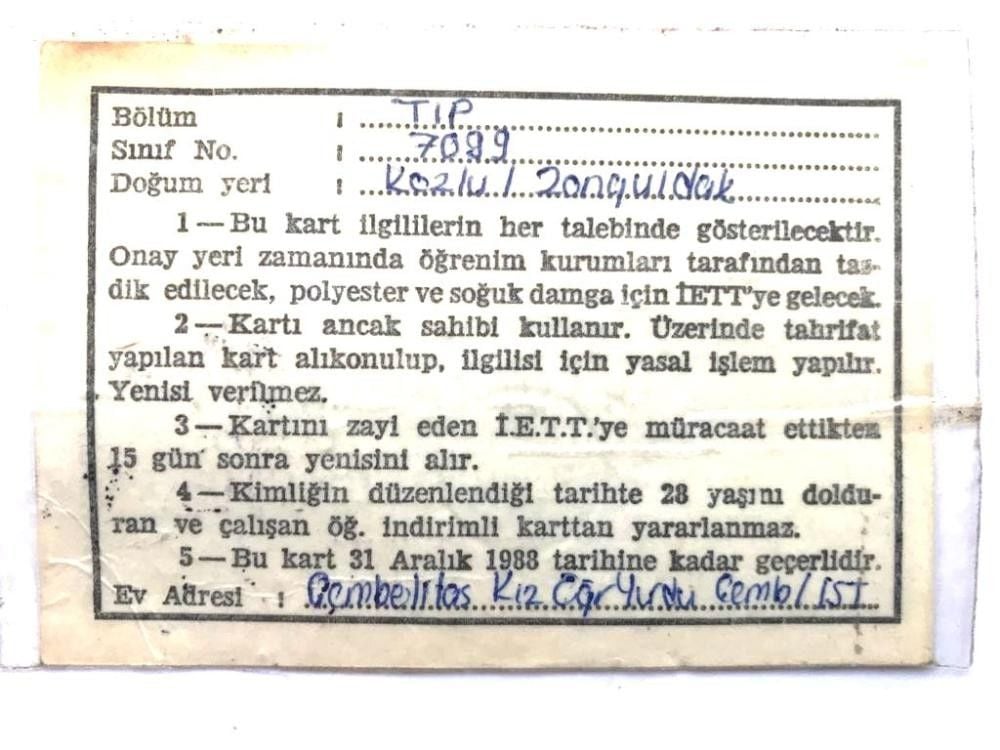 Bölüm : TIP
Sınıf No. : 7099
Doğum yeri : Kozlu / Zonguldak
1 — Bu kart ilgililerin her talebinde gösterilecektir.
Onay yeri zamanında öğrenim kurumları tarafından tas-
dik edilecek, polyester ve soğuk damga için İETT'ye gelecek.
2 — Kartı ancak sahibi kullanır. Üzerinde tahrifat
yapılan kart alıkonulup, ilgilisi için yasal işlem yapılır.
Yenisi verilmez.
3 — Kartını zayi eden İ.E.T.T.'ye müracaat ettikten
15 gün sonra yenisini alır.
4 — Kimliğin düzenlendiği tarihte 28 yaşını doldu-
ran ve çalışan öğ. indirimli karttan yararlanmaz.
5 — Bu kart 31 Aralık 1988 tarihine kadar geçerlidir.
Ev Adresi : Çemberlitaş Kız Öğr Yurdu Çemb / İST